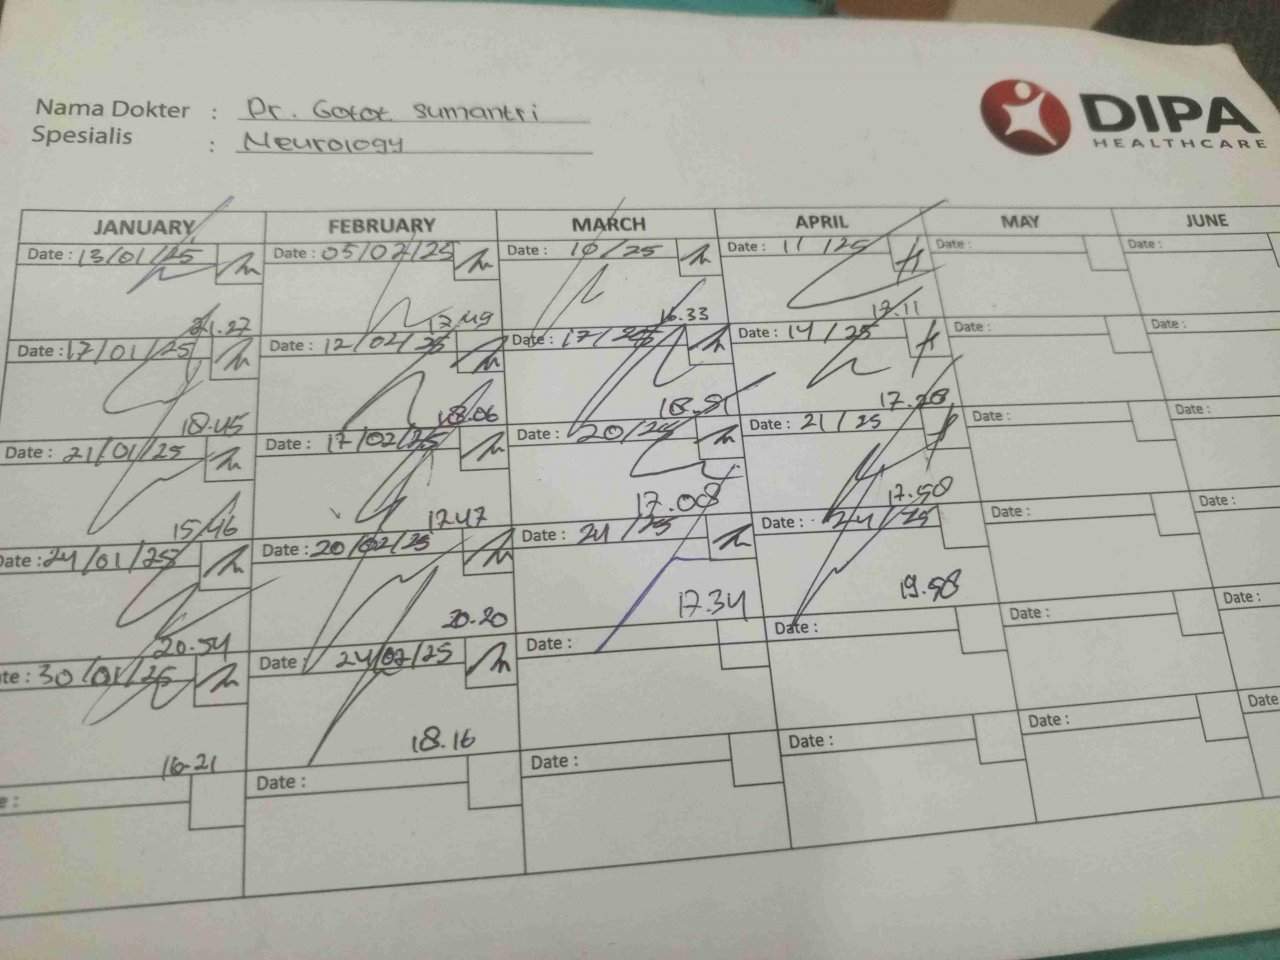 Nama Dokter : Dr. Gatot Sumantri
Spesialis : Neurology
DIPA
HEALTHCARE
JANUARY FEBRUARY MARCH APRIL MAY JUNE
Date : 13/01/25 Date : 05/02/25 Date : 10/25 Date : 11/25 Date : Date :
17.49 16.33 17.11
Date : 17/01/25 Date : 12/02/25 Date : 17/25 Date : 14/25 Date : Date :
18.45 18.06 18.51
Date : 21/01/25 Date : 17/02/25 Date : 20/25 Date : 21/25 Date : Date :
15.46 17.47 17.08 17.58
Date : 24/01/25 Date : 20/02/25 Date : 24/25 Date : 24/25 Date : Date :
20.54 20.20 17.34 19.58
30/01/25 Date : 24/02/25 Date : Date : Date : Date :
16.21 18.16
Date : Date : Date : Date : Date